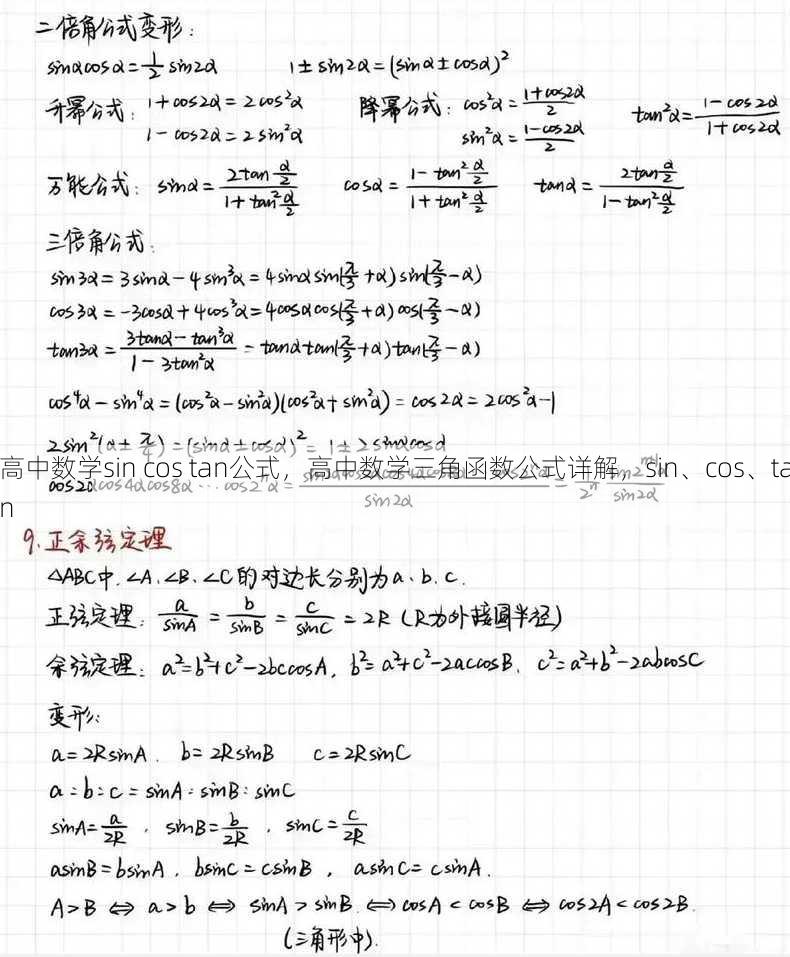 二倍角公式变形:
sinαcosα=1/2 sin2α 1±sin2α=(sinα±cosα)²
升幂公式: 1+cos2α=2cos²α 降幂公式: cos²α=(1+cos2α)/2 tan²α=(1-cos2α)/(1+cos2α)
1-cos2α=2sin²α sin²α=(1-cos2α)/2
万能公式: sinα=(2tan α/2)/(1+tan² α/2) cosα=(1-tan² α/2)/(1+tan² α/2) tanα=(2tan α/2)/(1-tan² α/2)
三倍角公式:
sin3α=3sinα-4sin³α=4sinαsin(π/3+α)sin(π/3-α)
cos3α=-3cosα+4cos³α=4cosαcos(π/3+α)cos(π/3-α)
tan3α=(3tanα-tan³α)/(1-3tan²α)=tanαtan(π/3+α)tan(π/3-α)
cos⁴α-sin⁴α=(cos²α-sin²α)(cos²α+sin²α)=cos2α=2cos²α-1
2sin²(α±π/4)=(sinα±cosα)²=1±2sinαcosα
高中数学sin cos tan公式，高中数学三角函数公式详解，sin、cos、ta
n
cos2αcos4αcos8α…cos2ⁿα=
9.正余弦定理
△ABC中,∠A、∠B、∠C的对边长分别为a、b、c.
正弦定理: a/sinA=b/sinB=c/sinC=2R (R为外接圆半径)
余弦定理: a²=b²+c²-2bccosA, b²=a²+c²-2accosB, c²=a²+b²-2abcosC
变形:
a=2RsinA. b=2RsinB c=2RsinC
a:b:c=sinA:sinB:sinC
sinA=a/2R , sinB=b/2R , sinC=c/2R
asinB=bsinA, bsinC=csinB, asinC=csinA.
A>B ⇔ a>b ⇔ sinA>sinB ⇔ cosA<cosB ⇔ cos2A<cos2B.
(三角形中).